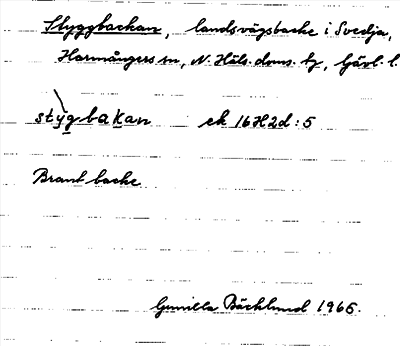 Styggbackan, landsvägsbacke i Svedja,
Harmångers sn, N. Häls. doms. tg, Gävl. l.
stýgbakan ek 16H2d:5
Brant backe
Gunilla Bäcklund 1965.